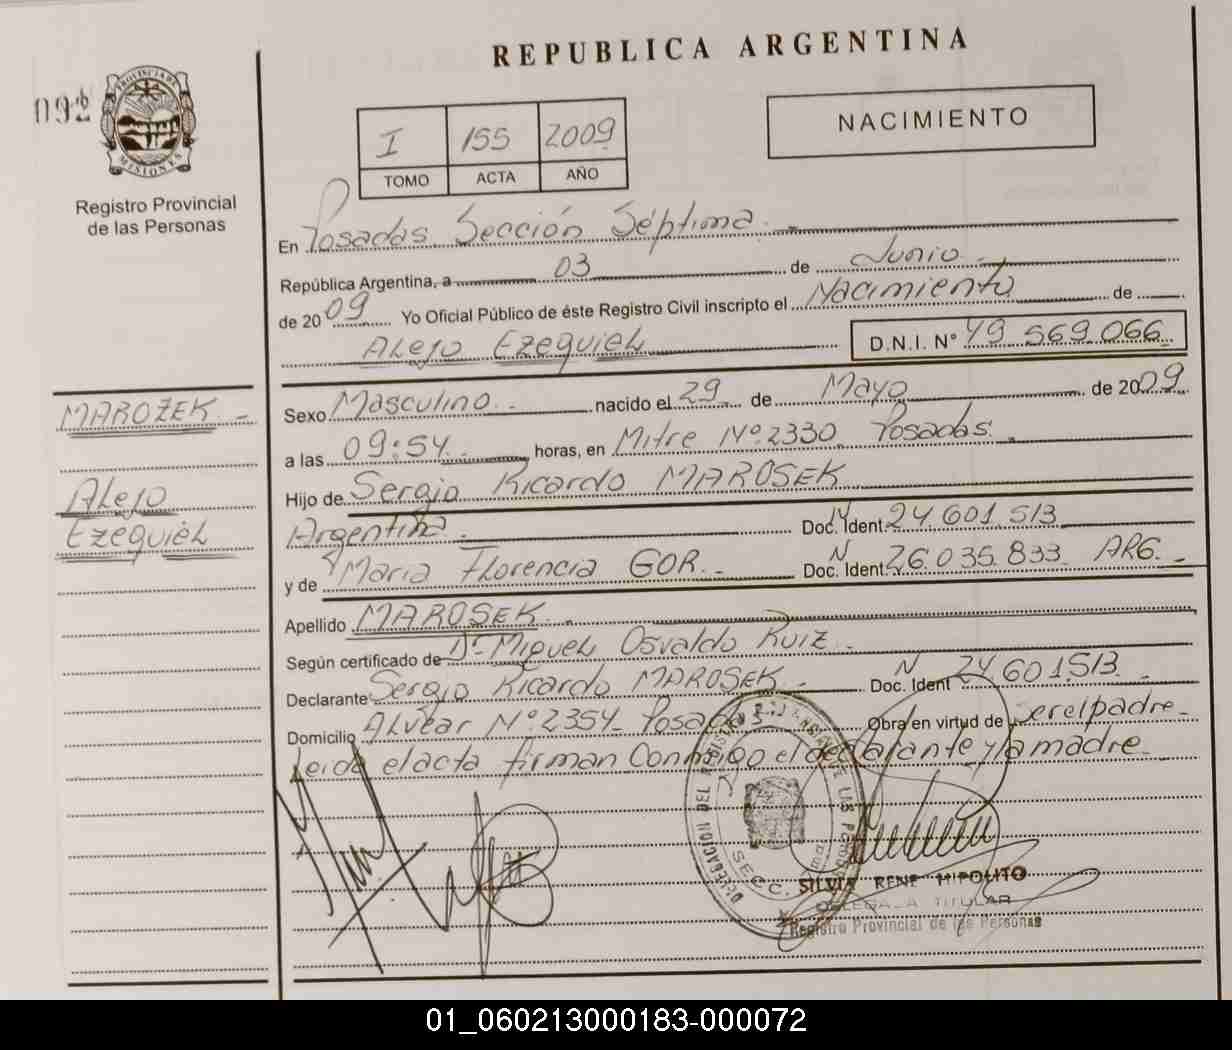 REPUBLICA ARGENTINA
092
PROVINCIA DE
MISIONES
Registro Provincial
de las Personas
I 155 2009
TOMO ACTA AÑO
NACIMIENTO
En Posadas Sección Séptima.
República Argentina, a 03 de Junio
de 2009 Yo Oficial Público de éste Registro Civil inscripto el Nacimiento de
Alejo Ezequiel D.N.I. Nº 49.569.066
MAROZEK.-
Alejo
Ezequiel
Sexo Masculino.- nacido el 29 de Mayo de 2009
a las 09:54 horas, en Mitre Nº 2330 Posadas.
Hijo de Sergio Ricardo MAROSEK
Argentina.- Doc. Ident N 24.601.513
y de Maria Florencia GOR.- Doc. Ident N 26.035.833 ARG.-
Apellido MAROSEK.-
Según certificado de Dr. Miguel Osvaldo Ruiz.-
Declarante Sergio Ricardo MAROSEK.- Doc. Ident N 24.601.513
Domicilio Alvear Nº 2354 Posadas Obra en virtud de Ser el padre-
Leida el acta firman Conmigo el declarante y la madre-
DELEGACION DEL REGISTRO PROVINCIAL DE LAS PERSONAS
SECC.
SILVIA RENE HIPOLITO
DELEGADA TITULAR
Registro Provincial de las Personas
01_060213000183-000072